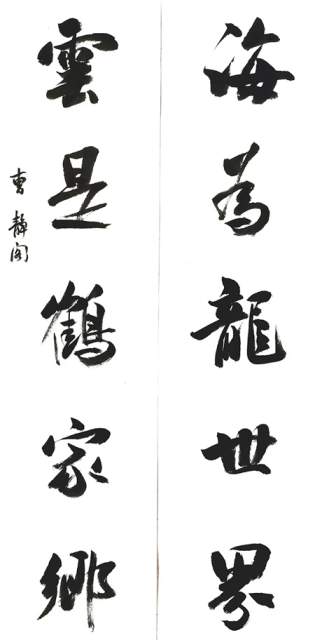 海為龍世界
雲是鶴家鄉
曹靜阁